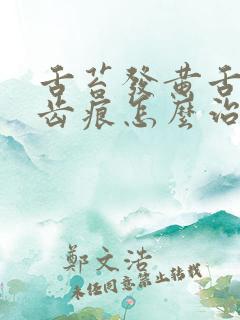 舌苔發黃舌
齒痕怎麼治
鄭文浩
未经同意禁止转载